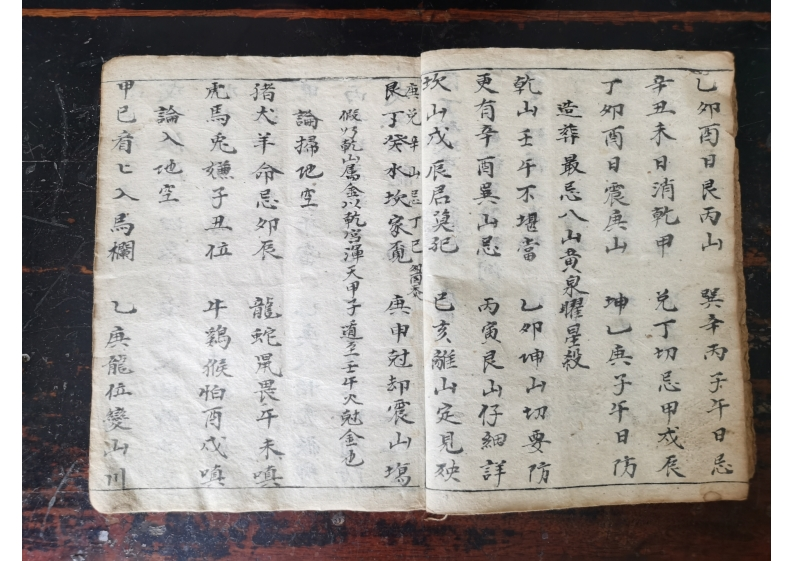 乙卯酉日艮丙山 巽辛丙壬午日忌
辛丑未日消乾甲 兌丁切忌甲戌辰
丁卯酉日震庚山 坤乙庚子午日防
造葬最忌八山黄泉曜星殺
乾山壬午不堪當 乙卯坤山切要防
更有辛酉巽山忌 丙寅艮山仔細詳
坎山戊辰君莫犯 己亥離山定見殃
庚兌辛山忌丁巳
艮丁癸水坎家覓 庚申尅却震山塲
假以乾山属金以乾宫渾天甲子遁至壬午火尅金也
論掃地空
猪犬羊命忌卯辰 龍蛇鼠畏午未嗔
虎馬兎嫌子丑位 牛鷄猴怕酉戌嗔
論入地空
甲巳看亡入馬欄 乙庚龍位變山川